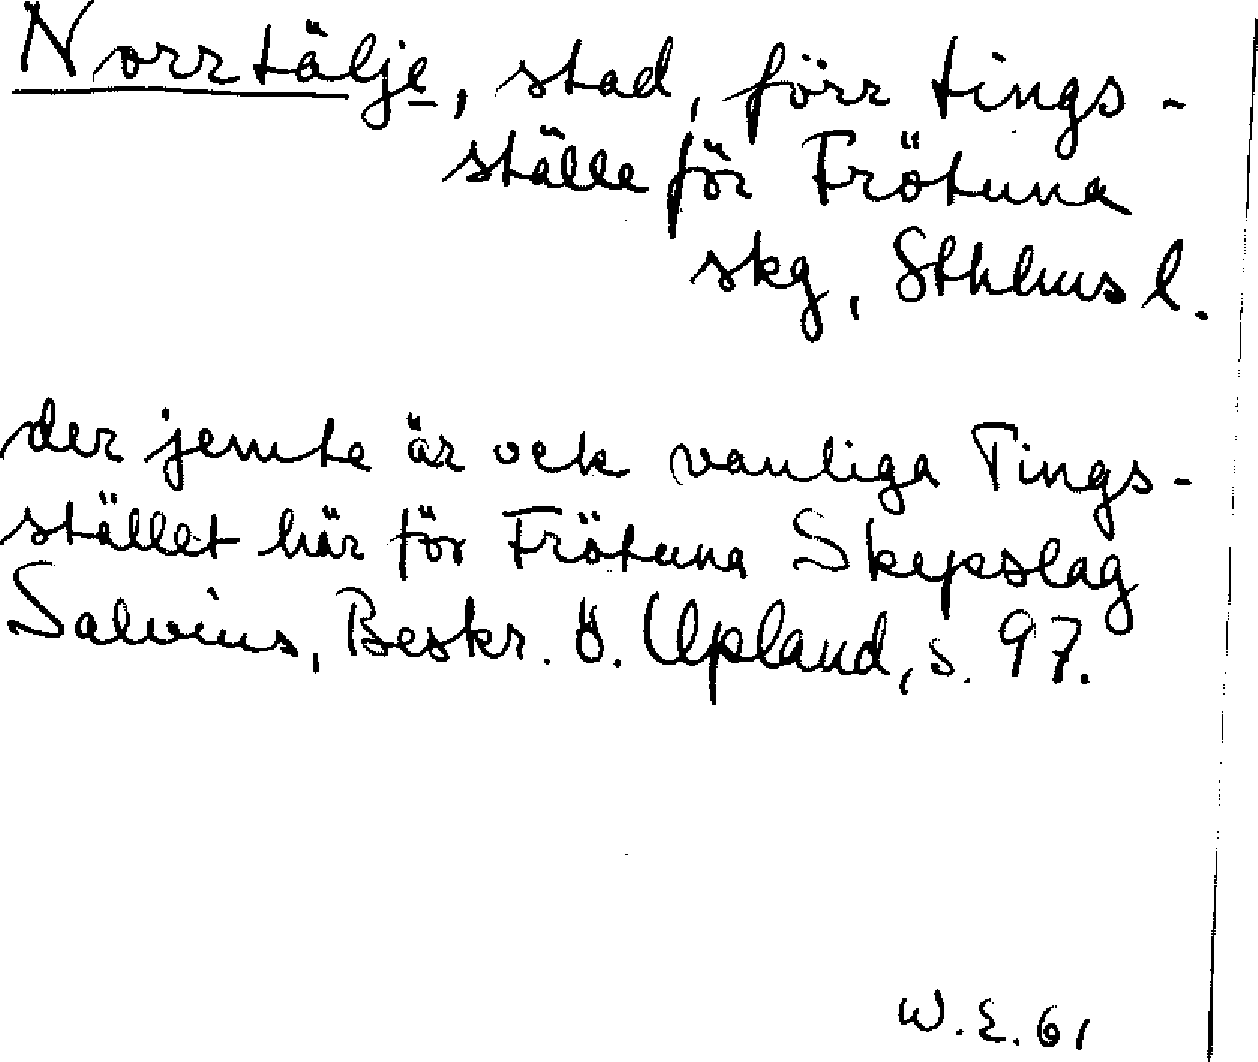 Norrtälje, stad, förr tings-
ställe för Frötuna
skg, Sthlms l.
der jemte är ock vanliga Tings-
stället här för Frötuna Skepslag
Salvius, Beskr. ö. Upland, s. 97.
W. E. 61